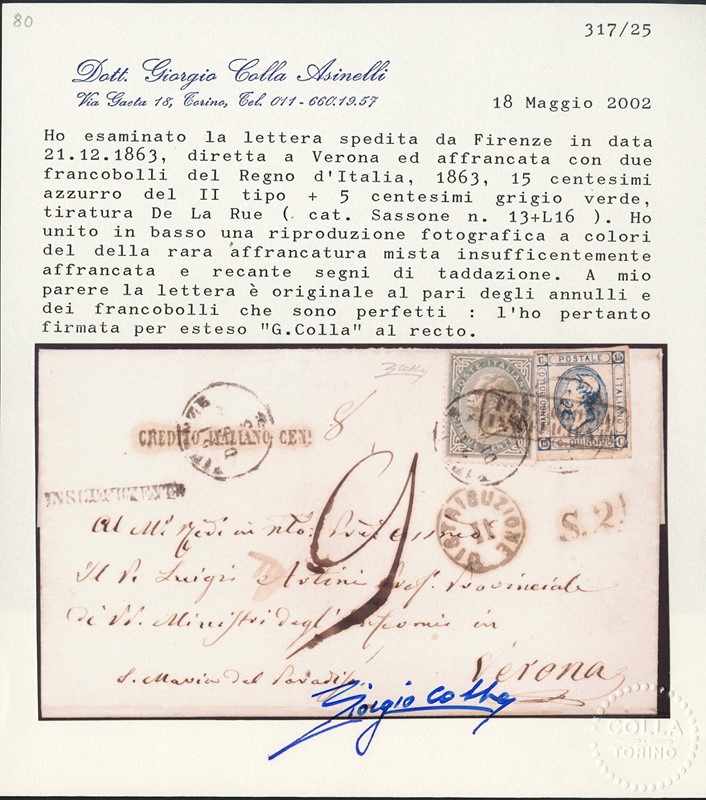 80
317/25
Dott. Giorgio Colla Asinelli
Via Gaeta 18, Torino, Tel. 011 - 660.19.57
18 Maggio 2002
Ho esaminato la lettera spedita da Firenze in data
21.12.1863, diretta a Verona ed affrancata con due
francobolli del Regno d'Italia, 1863, 15 centesimi
azzurro del II tipo + 5 centesimi grigio verde,
tiratura De La Rue ( cat. Sassone n. 13+L16 ). Ho
unito in basso una riproduzione fotografica a colori
del della rara affrancatura mista insufficientemente
affrancata e recante segni di taddazione. A mio
parere la lettera è originale al pari degli annulli e
dei francobolli che sono perfetti : l'ho pertanto
firmata per esteso "G.Colla" al recto.
G Colla
POSTALE
ITALIANO
FRANCO BOLLO
C 15
FIRENZE
CREDITO ITALIANO CENT
8
INSUFFICIENTE
9
DISTRIBUZIONE
S. 2!
Al
Il P. Luigi Artini Prof. Provinciale
di VV. Ministri degl' Infermi in
S. Maria del Paradiso
Verona
Giorgio Colla
COLLA
TORINO